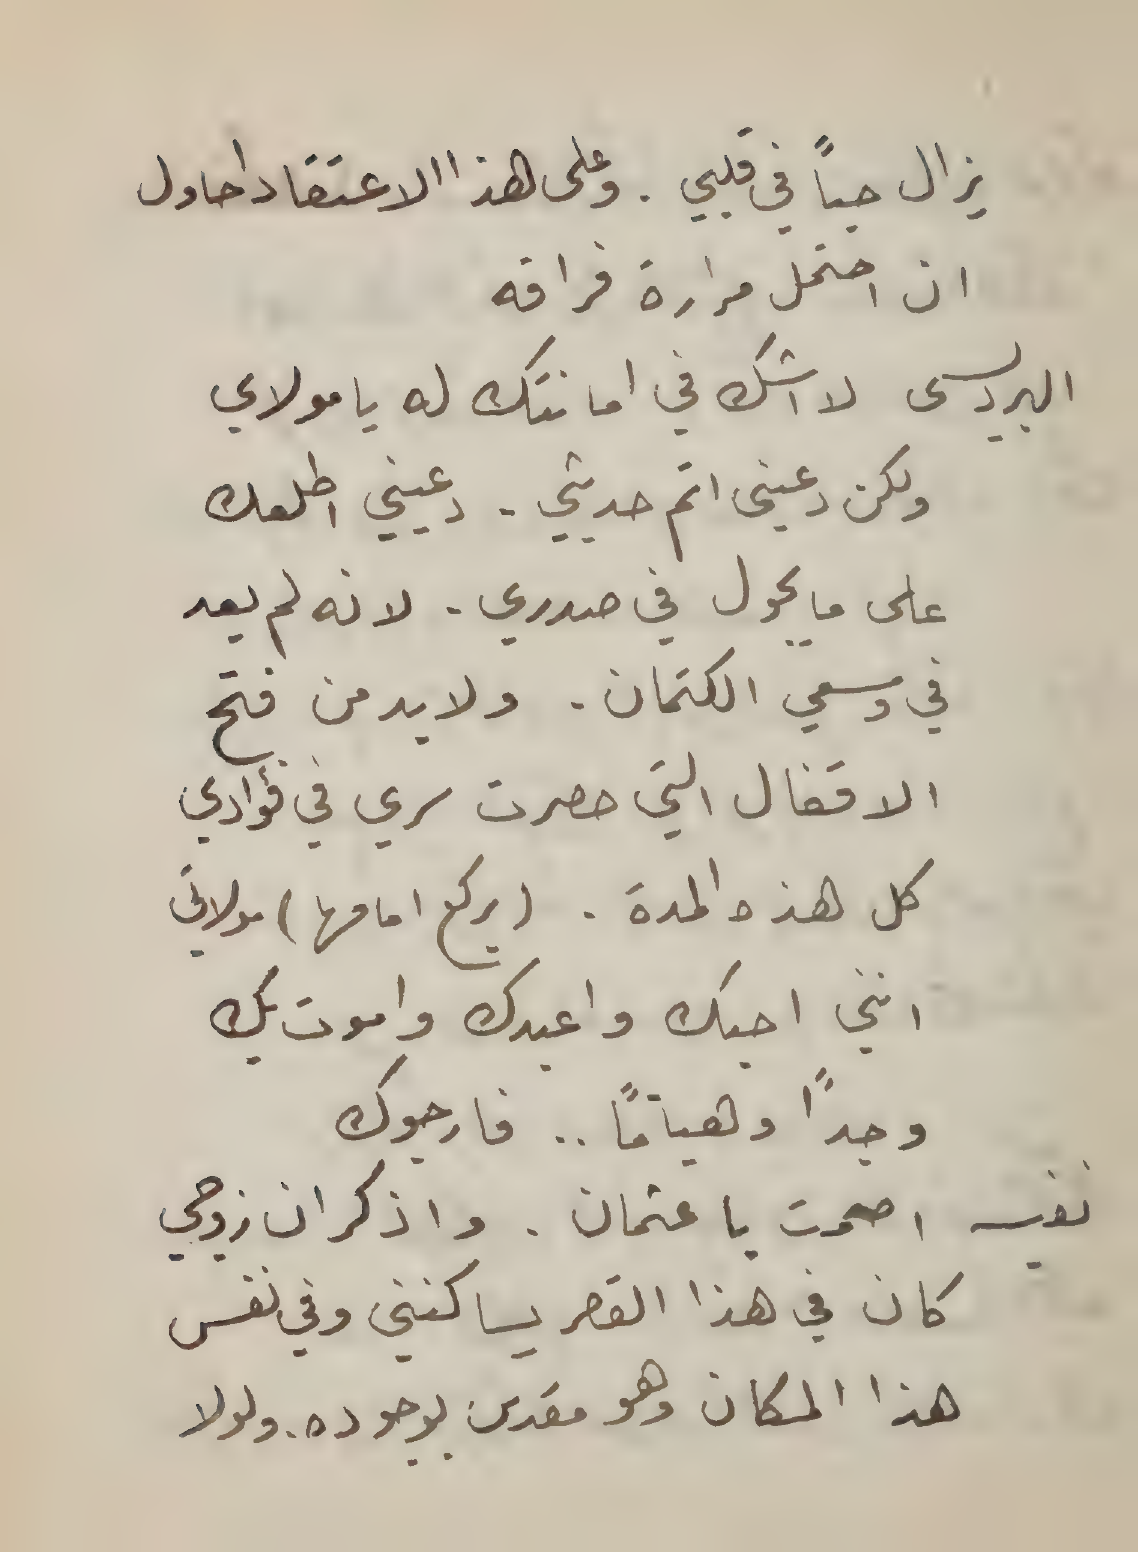 يزال حياً في قلبي . وعلى هذا الاعتقاد احاول
ان احتمل مرارة فراقه
البرديسى لا اشك في امانتك له يا مولاي
ولكن دعينى اتم حديثي . دعيني اطلعك
على ما يجول في صدري . لانه لم يعد
في وسعي الكتمان . ولا بد من فتح
الاقفال التي حصرت سري في فؤادي
كل هذه المدة . (يركع امامها) مولاتي
انني احبك واعبدك واموت بك
وجدًا وهيامًا .. فارجوك
نفيسه اصمت يا عثمان . واذكر ان زوجي
كان في هذا القصر يساكنني وفي نفس
هذا المكان وهو مقدس بوجوده . ولولا